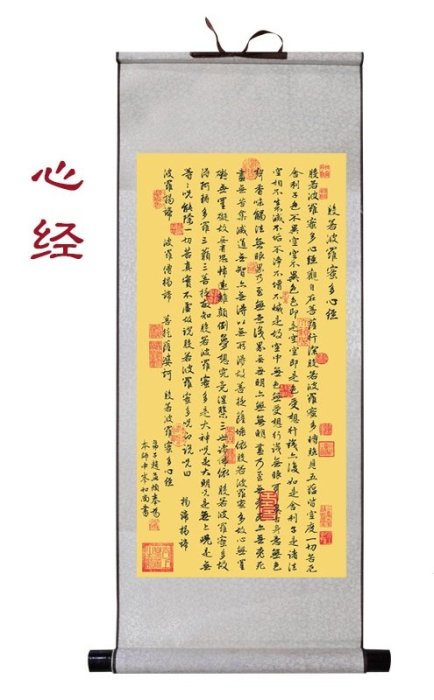 心经
般若波羅蜜多心經
般若波羅蜜多心經觀自在菩薩行深般若波羅蜜多時照見五蘊皆空度一切苦厄
舍利子色不異空空不異色色即是空空即是色受想行識亦復如是舍利子是諸法
空相不生不滅不垢不淨不增不減是故空中無色無受想行識無眼耳鼻舌身意無色
聲香味觸法無眼界乃至無意識界無無明亦無無明盡乃至無老死亦無老死
盡無苦集滅道無智亦無得以無所得故菩提薩埵依般若波羅蜜多故心無罣
礙無罣礙故無有恐怖遠離顛倒夢想究竟涅槃三世諸佛依般若波羅蜜多故
得阿耨多羅三藐三菩提故知般若波羅蜜多是大神咒是大明咒是無上咒是無
等等咒能除一切苦真實不虛故說般若波羅蜜多咒即說咒曰 揭諦揭諦
波羅揭諦 波羅僧揭諦 菩提薩婆訶 般若波羅蜜多心經
弟子趙孟頫奉為
本師中峯和尚書